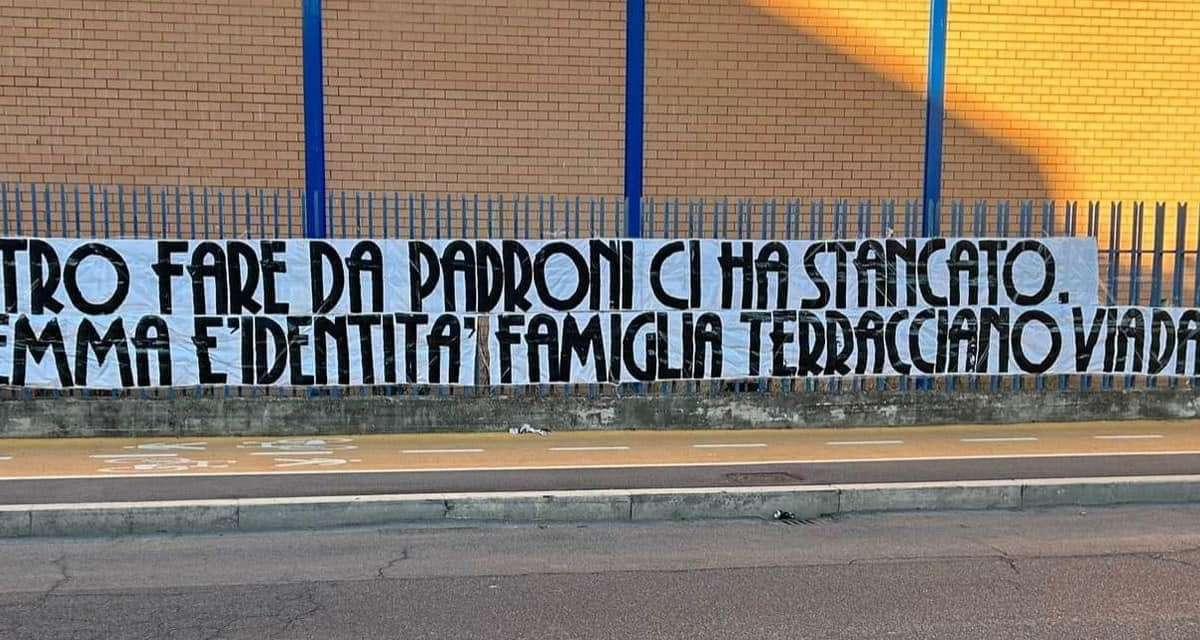 TRO FARE DA PADRONI CI HA STANCATO.
EMMA E' IDENTITA' FAMIGLIA TERRACCIANO VIA DA